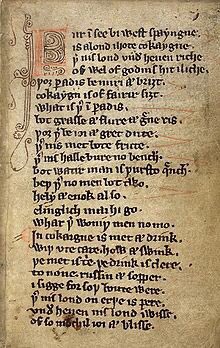 Fur ī see bi west spayngne
is a lond ihote cokaygne
þ͛ nis lond vnd͛ heuen riche
of wel of godnis hit iliche
þoȝ paradis be miri ⁊ briȝt
cokaygn is of fairir siȝt
what is þ͛ ī ꝑadis
bot grasse ⁊ flure ⁊ g͛ne ris
þoȝ þ͛ be ioi ⁊ gret dute
þ͛ nis met bote frute
þ͛ nis halle bure no bench
bot watir man is þursto qͥnch
beþ þ͛ no men bot two
hely ⁊ enok also
elinglich mai hi go
whar þ͛ woniþ men no mo
In cokaigne is met ⁊ drink
wiþ vte care how ⁊ swink
þe met is trie þe drink is clere
to none russin ⁊ sopper
i sigge for soþ boute were
þ͛ nis lond on erþe is pere
vnd͛ heuen nis lond iwisse
of so mochil ioi ⁊ blisse